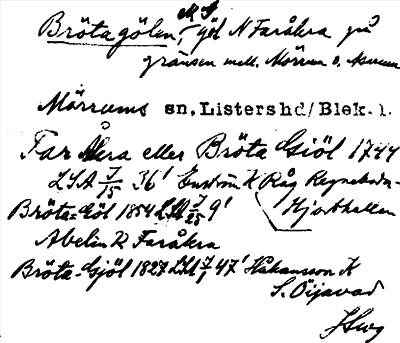 Bröta gölen, göl N Faråkra på
gränsen mell. Mörrum o. Asarum
Mörrums sn, Listers hd/Blek. l.
Far Åkra eller Bröta Giöl 1744
LSA 7/15 36' Enström K Råg
Bröta-Göl 1854 LSA 7/25 9' Hjorthallen
Abelin R Faråkra
Bröta-Gjöl 1827 LSA 7/1 47' Håkansson K
S. Öijavad